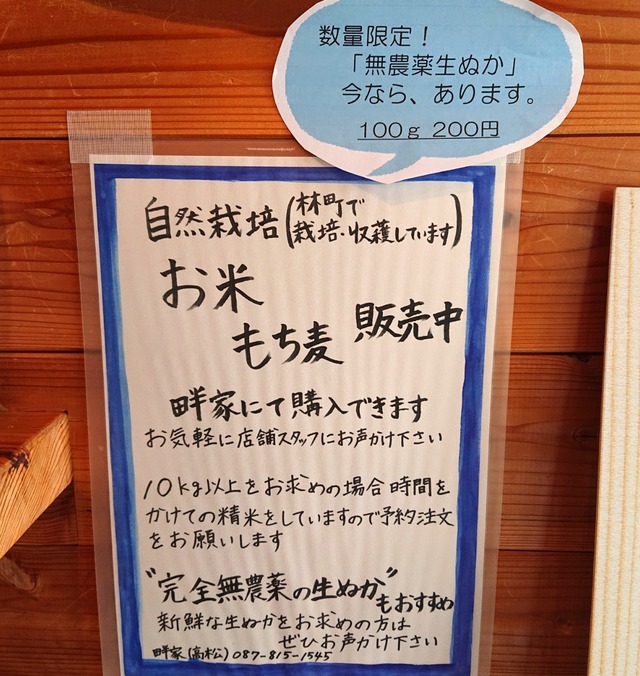 数量限定！
「無農薬生ぬか」
今なら、あります。
100g 200円
自然栽培(林町で
栽培・収穫しています)
お米
もち麦 販売中
畔家にて購入できます
お気軽に店舗スタッフにお声かけ下さい
10kg以上をお求めの場合時間を
かけての精米をしていますので予約注文
をお願いします
"完全無農薬の生ぬか"
もおすすめ
新鮮な生ぬかをお求めの方は
ぜひお声かけ下さい
畔家(高松)087-815-1545